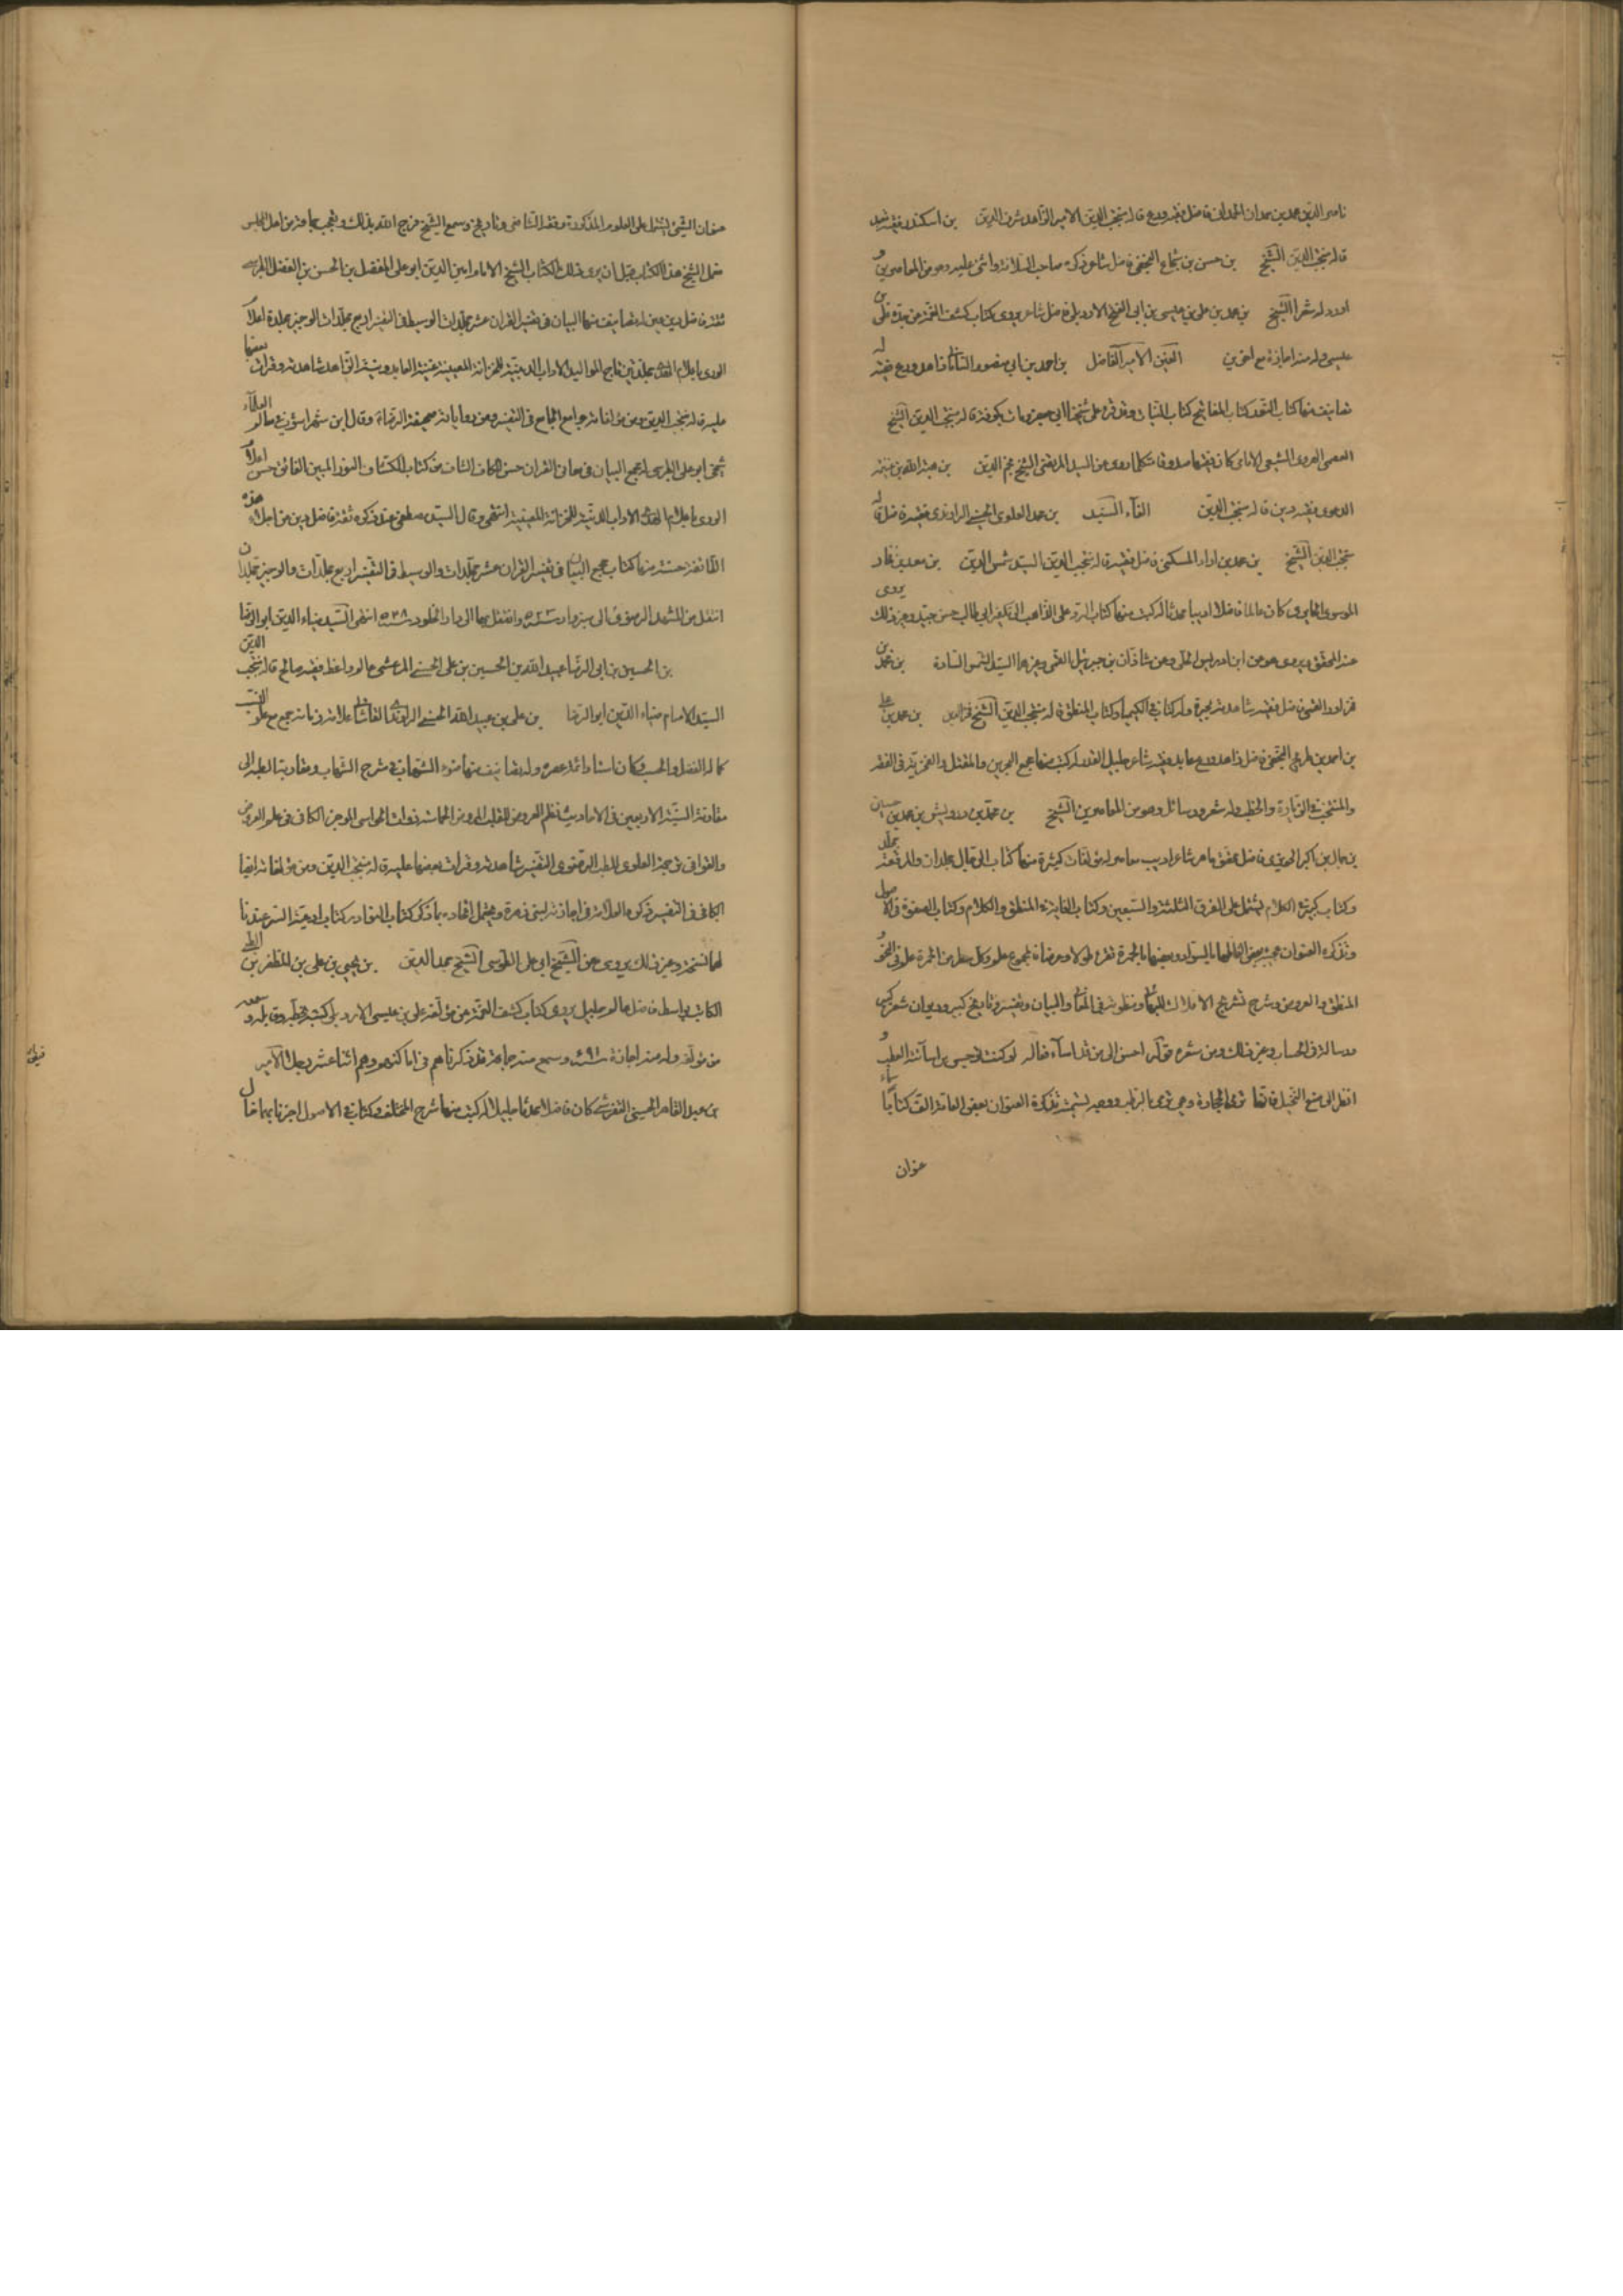 ناصر الدين محمد بن حمدان الحمداني فاضل فقيه ورع قاله منتجب الدين الامير الزاهد شرف الدين بن اسكندر فقيه
قاله منتجب الدين الشيخ بن حسن بن شجاع النجفي فاضل شاعر ذكره صاحب السلافة واثنى عليه وهو من المعاصرين و
اورد له شعرا الشيخ بن محمد بن علي بن عيسى بن ابي الفتح الاربلي فاضل شاعر يروي كتاب كشف الغمة عن جده علي بن
عيسى وله منه اجازة مع اخرين الامير الفاضل بن احمد بن ابي منصور زاهد ورع فقيه له
تصانيف منها كتاب التوحيد كتاب المفاتيح كتاب النيات قاله منتجب الدين الشيخ
الشيعي الامامي كان فقيها صدوقا متكلما روى عن السيد المرتضى الشيخ نجم الدين بن
فقيه دين قاله منتجب الدين السيد بن محمد العلوي الحسني الراوندي فقيه فاضل قاله
منتجب الدين الشيخ بن محمد بن المسكني فاضل فقيه قاله منتجب الدين السيد شمس الدين بن معد بن فخار
الموسوي الحايري كان عالما فاضلا اديبا محدثا له كتب منها كتاب الرد على الذاهب الى تكفير ابي طالب حسن جيد وغير ذلك يروي
عنه المحقق ويروي هو عن ابن ادريس الحلي وعن شاذان بن جبرئيل القمي وغيرهما السيد شمس السادة بن محمد بن
القمي فاضل فقيه وله كتاب في الكيميا وكتاب المنطق قاله منتجب الدين الشيخ فخر الدين بن محمد بن علي
بن احمد بن طريح النجفي فاضل زاهد ورع عابد فقيه شاعر جليل القدر له كتب منها مجمع البحرين والمقتل والفخرية في الفقه
والمنتخب في الزيارة والخطب وله شعر ورسائل وهو من المعاصرين الشيخ بن محمد بن درويش بن محمد بن حسين
بن جمال بن اكبر الحويزي فاضل محقق ماهر شاعر اديب معاصر له مؤلفات كثيرة منها كتاب الرجال مجلدان والمرقعة مجلد
وكتاب كبير في الكلام يشتمل على الفرق الثلثة والسبعين وكتاب الغاية في المنطق والكلام وكتاب الصفوة في الاصول
وتذكرة العنوان عجيب بعض الفاظها بالسواد وبعضها بالحمرة تقرء طولا وعرضا فالمجموع علم وكل سطر من الحمرة علم في النحو و
المنطق والعروض وشرح تشريح الافلاك للبهائي ومنظومة في المعاني والبيان وتفسير وتاريخ كبير وديوان شعر كبير
ورسالة في الحساب وغير ذلك ومن شعره قوله احسن الى من قد اساء فعاله لو كنت توجس من اساءته العطب و
انظر الى صنع النخيل فانها ترمى الحجارة وهي ترمي بالرطب ووجه تسمية تذكرة العنوان بعض العامة الف كتابا سماه
عنوان
عنوان الشرف يشتمل على العلوم المذكورة وفقه الشافعي وتاريخ وسمع الشيخ فرج الله بذلك وتعجب جماعة من اهل المجلس
عمل الشيخ هذا الكتاب قبل ان يرى ذلك الكتاب الشيخ الامام امين الدين ابو علي الفضل بن الحسن بن الفضل الطبرسي
ثقة فاضل دين عين له تصانيف منها مجمع البيان في تفسير القران عشر مجلدات الوسيط في التفسير اربع مجلدات الوجيز مجلدة اعلام
الورى باعلام الهدى مجلدتين تاج المواليد الاداب الدينية للخزانة المعينية غنية العابد ومنية الزاهد شاهدته وقرات بعضها
عليه قاله منتجب الدين ومن مؤلفاته جوامع الجامع في التفسير ومن رواياته صحيفة الرضا ع وقال ابن شهراشوب في معالم العلماء
شيخي ابو علي الطبرسي له مجمع البيان في معاني القران حسن الكاف الشاف من كتاب الكشاف النور المبين الفائق حسن اعلام
الورى باعلام الهدى الاداب الدينية للخزانة المعينية انتهى وقال السيد مصطفى عند ذكره ثقة فاضل دين من اجلاء هذه
الطائفة حسنة منها كتاب مجمع البيان في تفسير القران عشر مجلدات والوسيط في التفسير اربع مجلدات والوجيز مجلدان
انتقل من المشهد الرضوي الى سبزوار سنة ٥٢٣ وانتقل بها الى دار الخلود سنة ٥٤٨ انتهى السيد ضياء الدين ابو الرضا
بن الحسين بن ابي الرضا عبيد الله بن الحسين بن علي الحسني المرعشي عالم واعظ فقيه صالح قاله منتجب الدين
السيد الامام ضياء الدين ابو الرضا بن علي بن عبيد الله الحسني الراوندي القاشاني علامة زمانه جمع مع علو النسب
كمال الفضل والحسب وكان استاد ائمة عصره وله تصانيف منها ضوء الشهاب في شرح الشهاب ومقاربة الطية الى
مقارنة النية الاربعين في الاحاديث نظم العروض للقلب المروض الحماسة ذوات الحواشي الموجز الكافي في علم العروض
والقوافي ترجمة العلوي للطب الرضوي التفسير شاهدته وقرات بعضها عليه قاله منتجب الدين ومن مؤلفاته ايضا
الكافي في التفسير ذكره العلامة في اجازته لبني زهرة ويحتمل اتحاده بما ذكر كتاب النوادر كتاب ادعية السر عندنا
لهما نسخة وغير ذلك يروي عن الشيخ ابي علي الطوسي الشيخ مجد الدين بن يحيى بن علي بن المظفر بن الطيبي
الكاتب بواسط فاضل عالم جليل يروي كتاب كشف الغمة عن مؤلفه علي بن عيسى الاربلي كتبه بخطه وقابله وسمعه
من مؤلفه وله منه اجازة سنة ٦٩١ وسمع منه جماعة قد ذكرناهم في اماكنهم وهم اثنا عشر رجلا الامير
بن عبد القاهر الحسيني التفرشي كان فاضلا محدثا جليلا له كتب منها شرح المختلف وكتاب في الاصول اخبرنا بهما خال